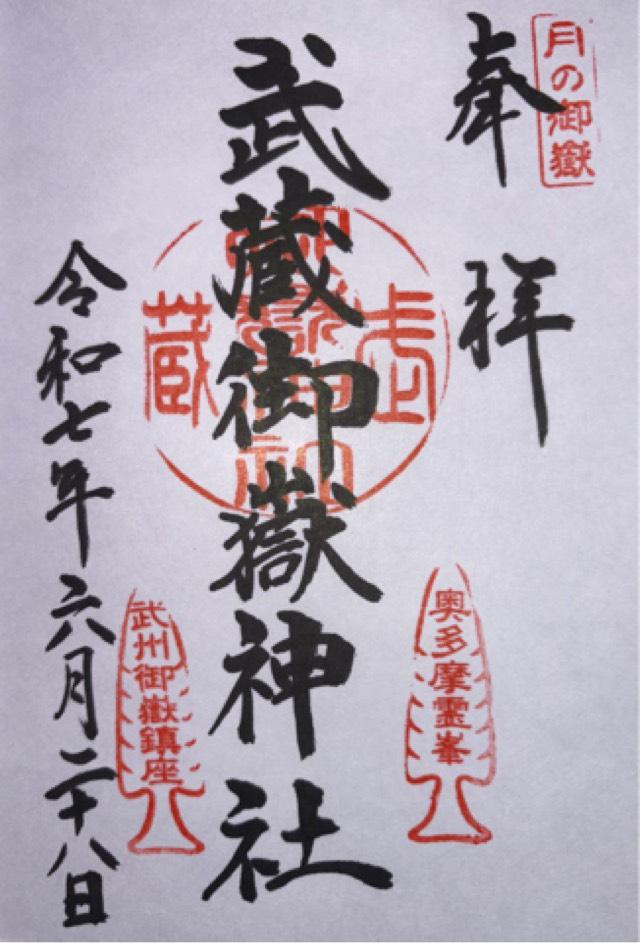 月の御嶽
奉拝
奥多摩霊峯
武蔵御嶽神社
武州御嶽鎮座
令和七年六月二十八日